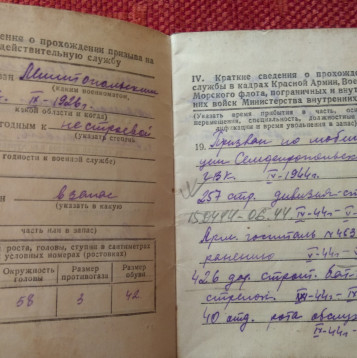 ения о прохождении призыва на
действительную службу
Мелитопольским
(каким военкоматом,
IX-1926г.
какой области и когда)
годным к нестроевой
(указать степень
годности к военной службе)
в запас
(указать в какую
часть или в запас)
роста, головы, ступни в сантиметрах
условных номерах (ростовках)
Окружность головы
Размер противогаза
Размер обуви
58
3
42
IV. Краткие сведения о прохожден
службы в кадрах Красной Армии, Вое
Морского флота, пограничных и внут
них войск Министерства внутренних
(Указать время прибытия в часть, д
перемещения, специальность, должностн
фикацию и время увольнения в запас)
19. Призван по моби
ции Симферопольск
ГВК. IV-1944г.
257 стр. дивизия-ст
IV-44г-V
Арм. госпиталь №463
ранению V-44г-V
426 дор. строит. бат-
стрелок -44г-IX
40 отд. рота обслу
IX-44г.